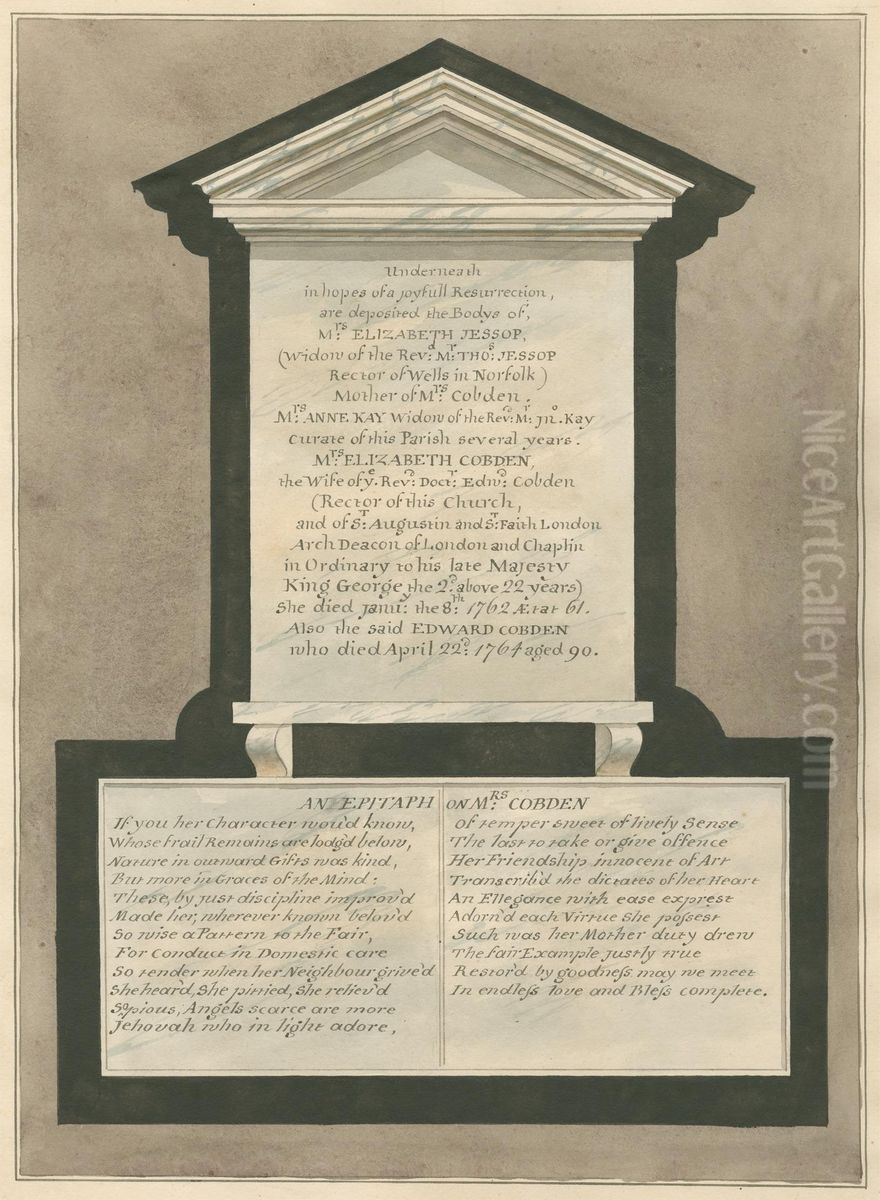 Underneath
in hopes of a joyfull Resurrection,
are deposited the Bodys of,
Mrs: ELIZABETH JESSOP,
(Widow of the Revd: Mr: THOs: JESSOP
Rector of Wells in Norfolk)
Mother of Mrs: Cobden.
Mrs: ANNE KAY Widow of the Revd: Mr: Jno. Kay
Curate of this Parish several years.
Mrs: ELIZABETH COBDEN,
the Wife of ye. Revd: Doctr: Edwd: Cobden
(Rector of this Church,
and of St: Augustin and St: Faith London
Arch Deacon of London and Chaplin
in Ordinary to his late Majesty
King George the 2d: above 22 years)
She died Janry: the 8th: 1762 Ætat 61.
Also the said EDWARD COBDEN
who died April 22d: 1764 aged 90.
AN EPITAPH ON Mrs: COBDEN
If you her Character wou'd know,
Whose frail Remains are lodg'd below,
Nature in outward Gifts was kind,
But more in Graces of the Mind:
These, by just discipline improv'd
Made her, wherever known belov'd
So wise a Pattern to the Fair,
For Conduct in Domestic care
So tender when her Neighbour griev'd
She heard, She pitied, She reliev'd
So pious, Angels scarce are more
Jehovah who in light adore,
Of temper sweet of lively Sense
The last to take or give offence
Her Friendship innocent of Art
Transcrib'd the dictates of her Heart
An Ellegance with ease exprest
Adorn'd each Virtue she poſsest
Such was her Mother duty drew
The fair Example justly true
Restor'd by goodneſs may we meet
In endleſs love and Bleſs complete.
NiceArtGallery.com